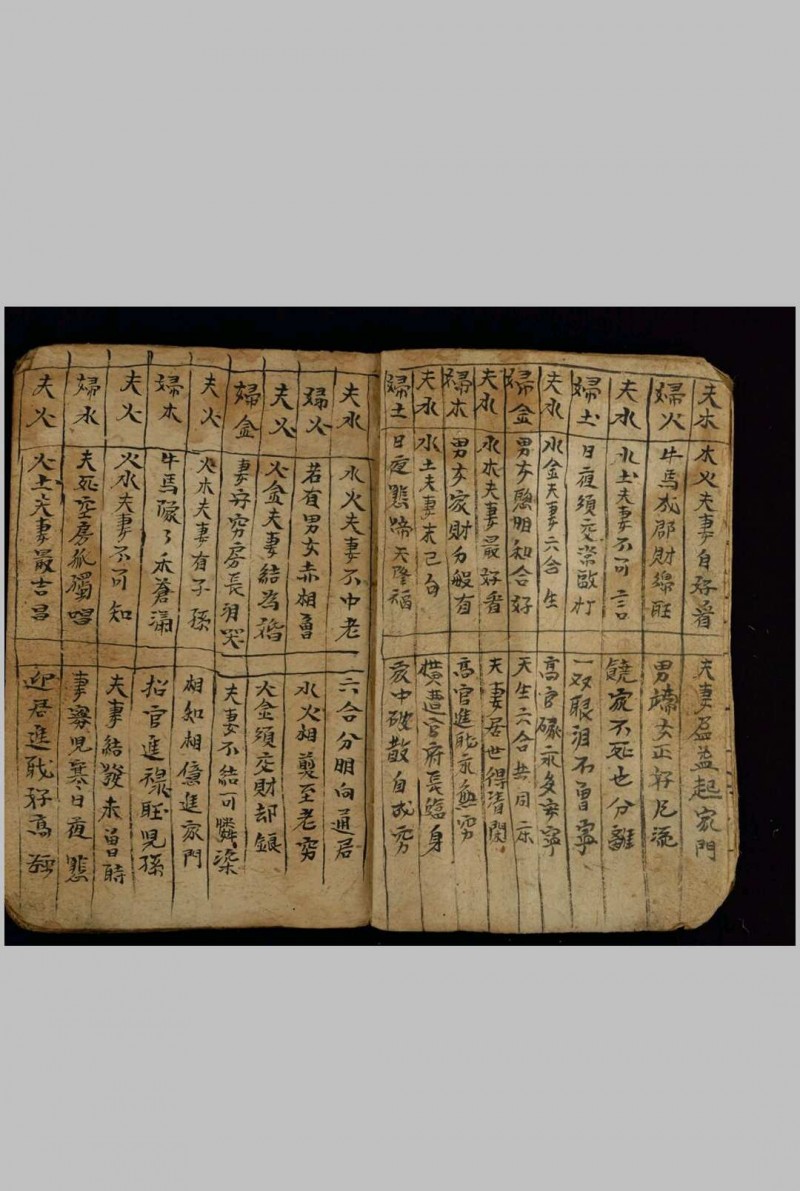 夫木 木火夫妻自好看 夫妻盈益起家門
婦火 牛馬成郡財綿旺 男婦女正好尼流
夫水 水土夫妻不可言 饒家不死也分離
婦土 日夜須交常毆打 一双眼泪不曾寧
夫水 水金夫妻六合生 高官祿永多安寧
婦金 男女聰明和合好 天生六合共同宗
夫水 水木夫妻最好看 夫妻居世得清閑
婦木 男女家財分般有 高官進能永無窮
夫水 水土夫妻未已台 橫遭官府長臨身
婦土 日夜悲啼天降福 家中破散自成窮
夫水 水火夫妻不中老 六合分明向通居
婦火 若有男女赤相曾 水火相剪至老窮
夫火 火金夫妻結為婚 火金須交財却銀
婦金 妻守窮房長泪哭 夫妻不結可憐染
夫火 火木夫妻有子孫 相知相億進家門
婦木 牛馬隊了禾蒼滿 招官進祿旺兒孫
夫火 火水夫妻不可知 夫事結發未曾時
婦水 夫死空房孤獨唱 妻寡児寒日夜悲
夫火 火土夫妻最吉昌 迎君進戝好高